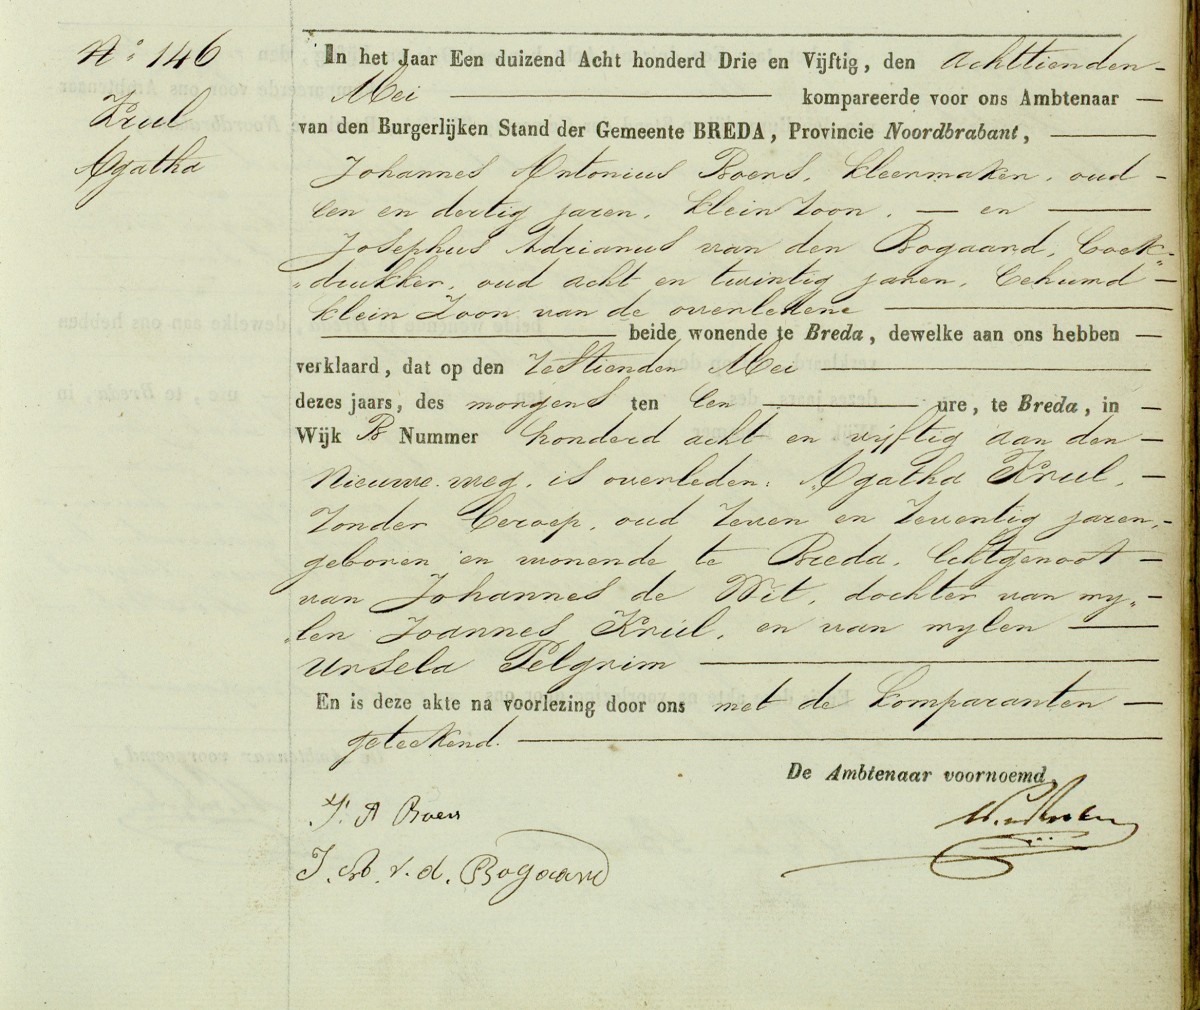 N.º 146
Krul
Agatha
In het Jaar Een duizend Acht honderd Drie en Vijftig, den achttienden
Mei kompareerde voor ons Ambtenaar
van den Burgerlijken Stand der Gemeente BREDA, Provincie Noordbrabant,
Johannes Antonius Boers, kleermaker, oud
een en dertig jaren, klein Zoon, en
Josephus Adrianus van den Bogaard, boek„
„drukker, oud acht en twintig jaren, behuwd
klein Zoon van de overledene
beide wonende te Breda, dewelke aan ons hebben
verklaard, dat op den Zestienden Mei
dezes jaars, des morgens ten een ure, te Breda, in
Wijk B Nummer honderd acht en vijftig aan den
Nieuwe weg, is overleden: Agatha Krul,
Zonder beroep, oud Zeven en Zeventig jaren,
geboren en wonende te Breda, Echtgenoot
van Johannes de Wit, dochter van wy„
„len Joannes Krul, en van wylen
Ursela Pelgrim
En is deze akte na voorlezing door ons met de komparanten
geteekend.
De Ambtenaar voornoemd,
J. A Boers
J. A. v. d. Bogaard